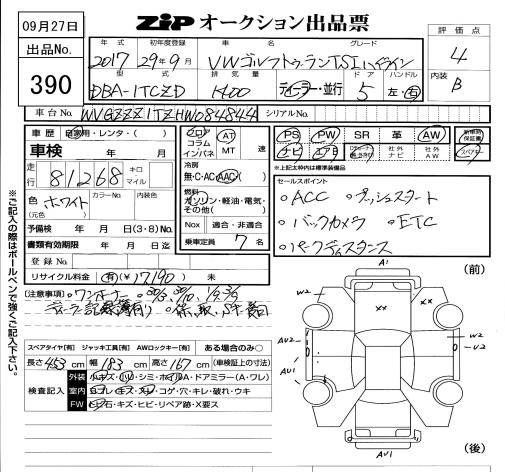 09月27日
ZIP オークション出品票
出品No.
390
年式 初年度登録 車名 グレード
2017 29年9月 VWゴルフトゥーランTSIハイライン
型式 排気量 ドア ハンドル
DBA-1TCZD 1400 ディーラー・並行 5 左・右
評価点
4
内装
B
車台No. WVGZZZ1TZHW084844 シリアルNo.
車歴 自家用・レンタ・( )
車検 年 月
走行 81268 キロ マイル
色 ホワイト (元色) カラーNo. 内装色
予備検 年 月 日(3・8)No.
書類有効期限 年 月 日迄
登録No.
リサイクル料金 有(¥17,190) 未
フロア コラム インパネ AT MT 速
冷房
無・C・AC・AAC
燃料
ガソリン・軽油・電気・その他( )
Nox 適合・非適合
乗車定員 7名
PS PW SR 革 AW 新車時保証書
ナビ エアB 社外ナビ 社外AW スペアキー
※上記太枠内は標準装備品
セールスポイント
・ACC ・プッシュスタート
・バックカメラ ・ETC
・パークディスタンス
(注意事項) ・ワンオーナー
ディーラー記録簿有り
スペアタイヤ【有】 ジャッキ工具【有】 AWロックキー【有】 ある場合のみ○
長さ 453 cm 幅 183 cm 高さ 167 cm (車検証上の寸法)
検査記入
外装 小キズ・凹・シミ・ホイルA・ドアミラー(A・ワレ)
室内 ヨゴレ・キズ・スレ・コゲ・穴・キレ・破れ・ウキ
FW 飛石・キズ・ヒビ・リペア跡・X要ス
※ご記入の際はボールペンで強くご記入下さい。
(前)
A1
W2
XX
XX
AU2
W2
U2
AU1
AU1
(後)